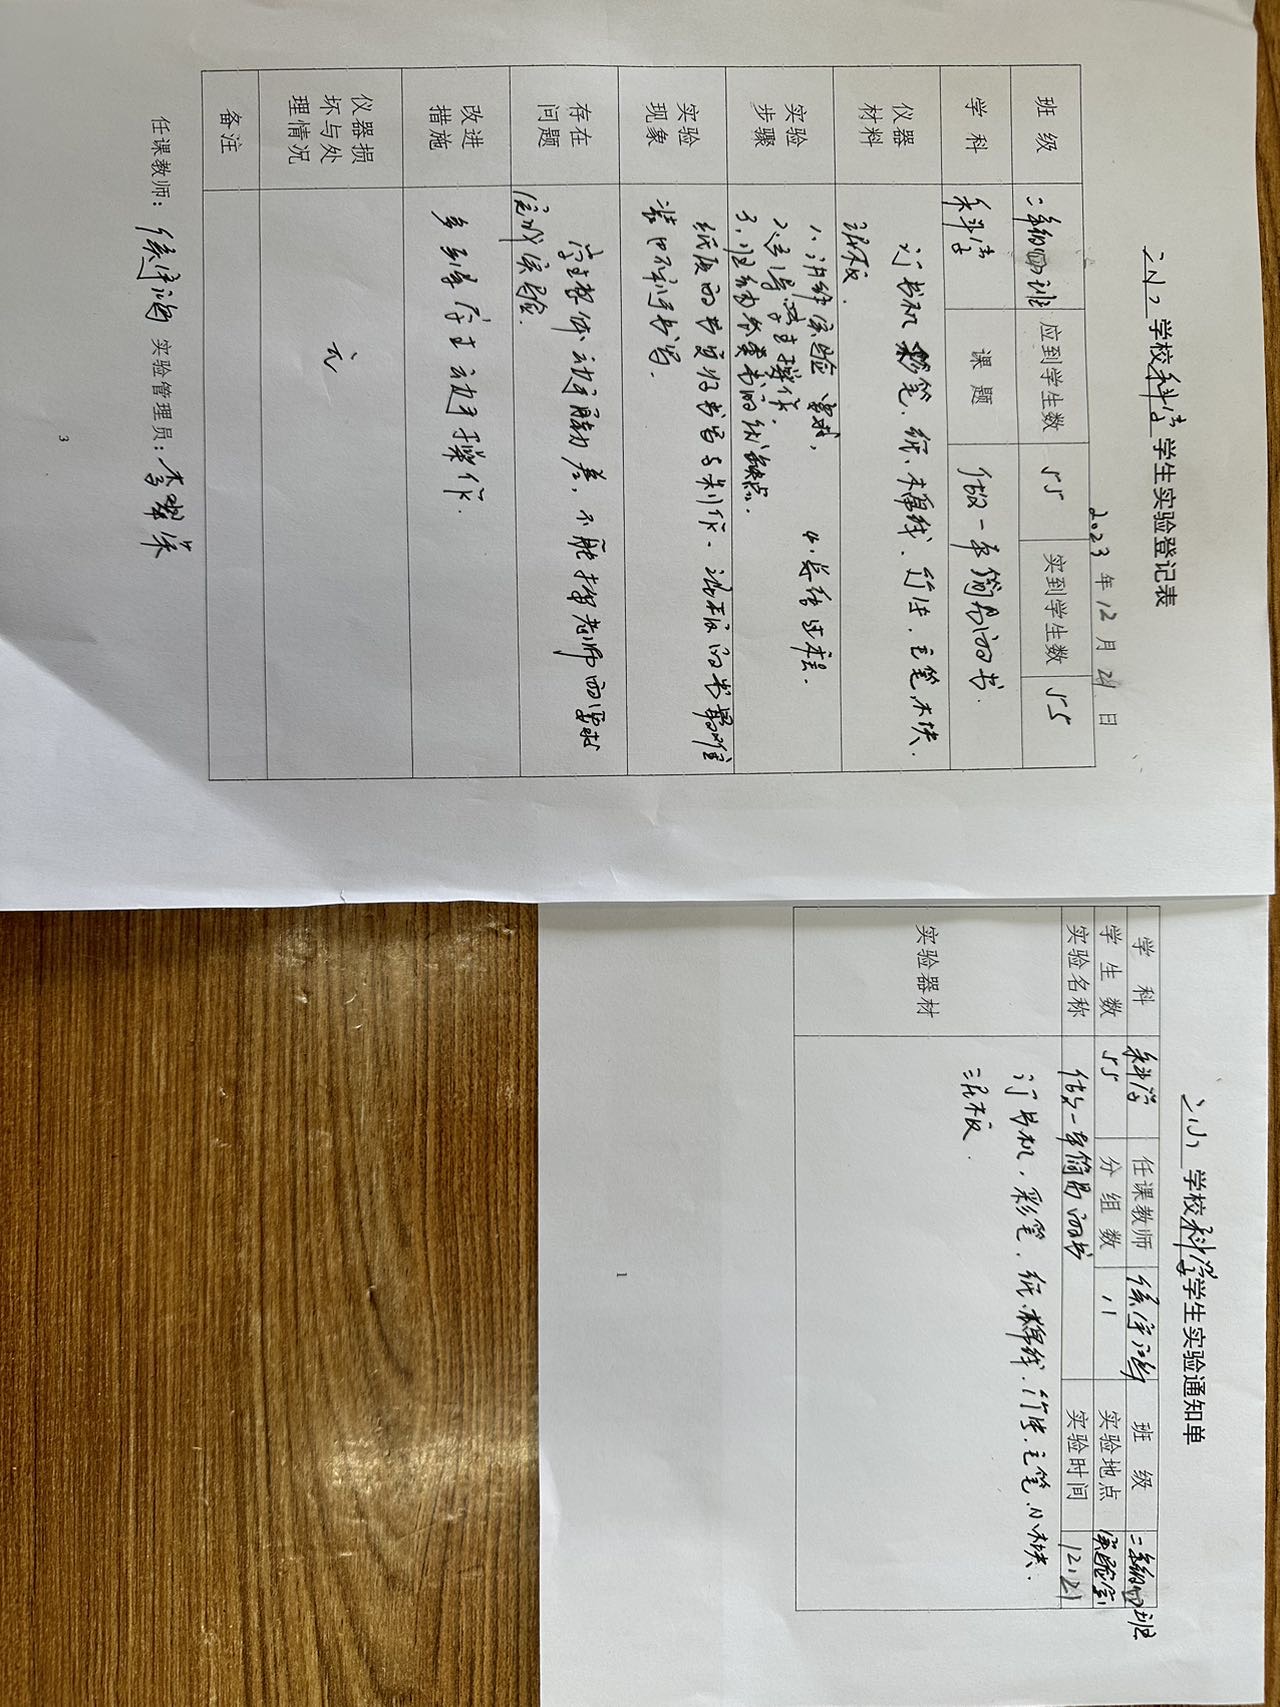 学校科学学生实验登记表
2023年12月21日
班级 二年级四班 应到学生数 55 实到学生数 55
学科 科学 课题 做一本简易的书
仪器材料 订书机、彩笔、纸、棉线、竹片、毛笔、木块、
泥板.
实验步骤 1、讲解实验要求,
2、引导学生操作.
3、归纳各类书的优缺点. 4、总结过本课.
实验现象 纸质的书更好书写与制作、泥板的书最难
装订不利于书写.
存在问题 学生整体动手能力差,不能按老师的要求
完成实验.
改进措施 多引导学生动手操作.
仪器损坏与处理情况 无
备注
任课教师: 实验管理员:
3
学校科学学生实验通知单
学科 科学 任课教师 班级 二年级四班
学生数 55 分组数 11 实验地点 实验室
实验名称 做一本简易的书 实验时间 12.21
实验器材 订书机、彩笔、纸、棉线、竹片、毛笔、小木块、
泥板.
1